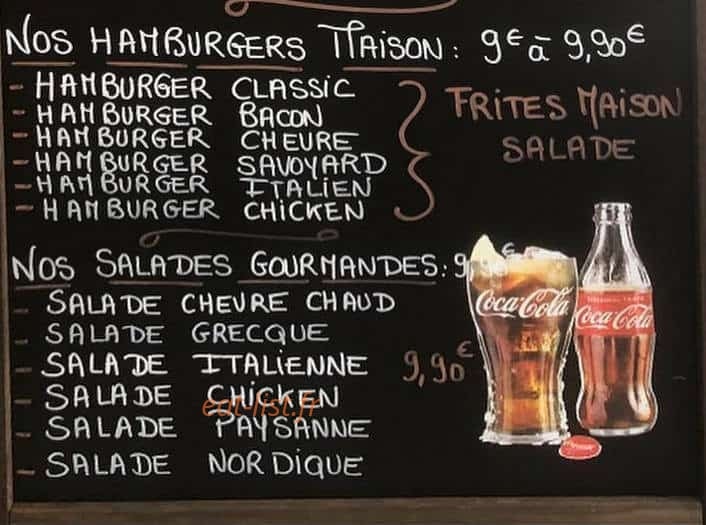 NOS HAMBURGERS MAISON: 9€ à 9,90€
- HAMBURGER CLASSIC
- HAMBURGER BACON
- HAMBURGER CHEVRE
- HAMBURGER SAVOYARD
- HAMBURGER ITALIEN
- HAMBURGER CHICKEN
FRITES MAISON
SALADE
NOS SALADES GOURMANDES: 9,90€
- SALADE CHEVRE CHAUD
- SALADE GRECQUE
- SALADE ITALIENNE
- SALADE CHICKEN
- SALADE PAYSANNE
- SALADE NORDIQUE
9,90€
Coca-Cola
Coca-Cola
eat-list.fr